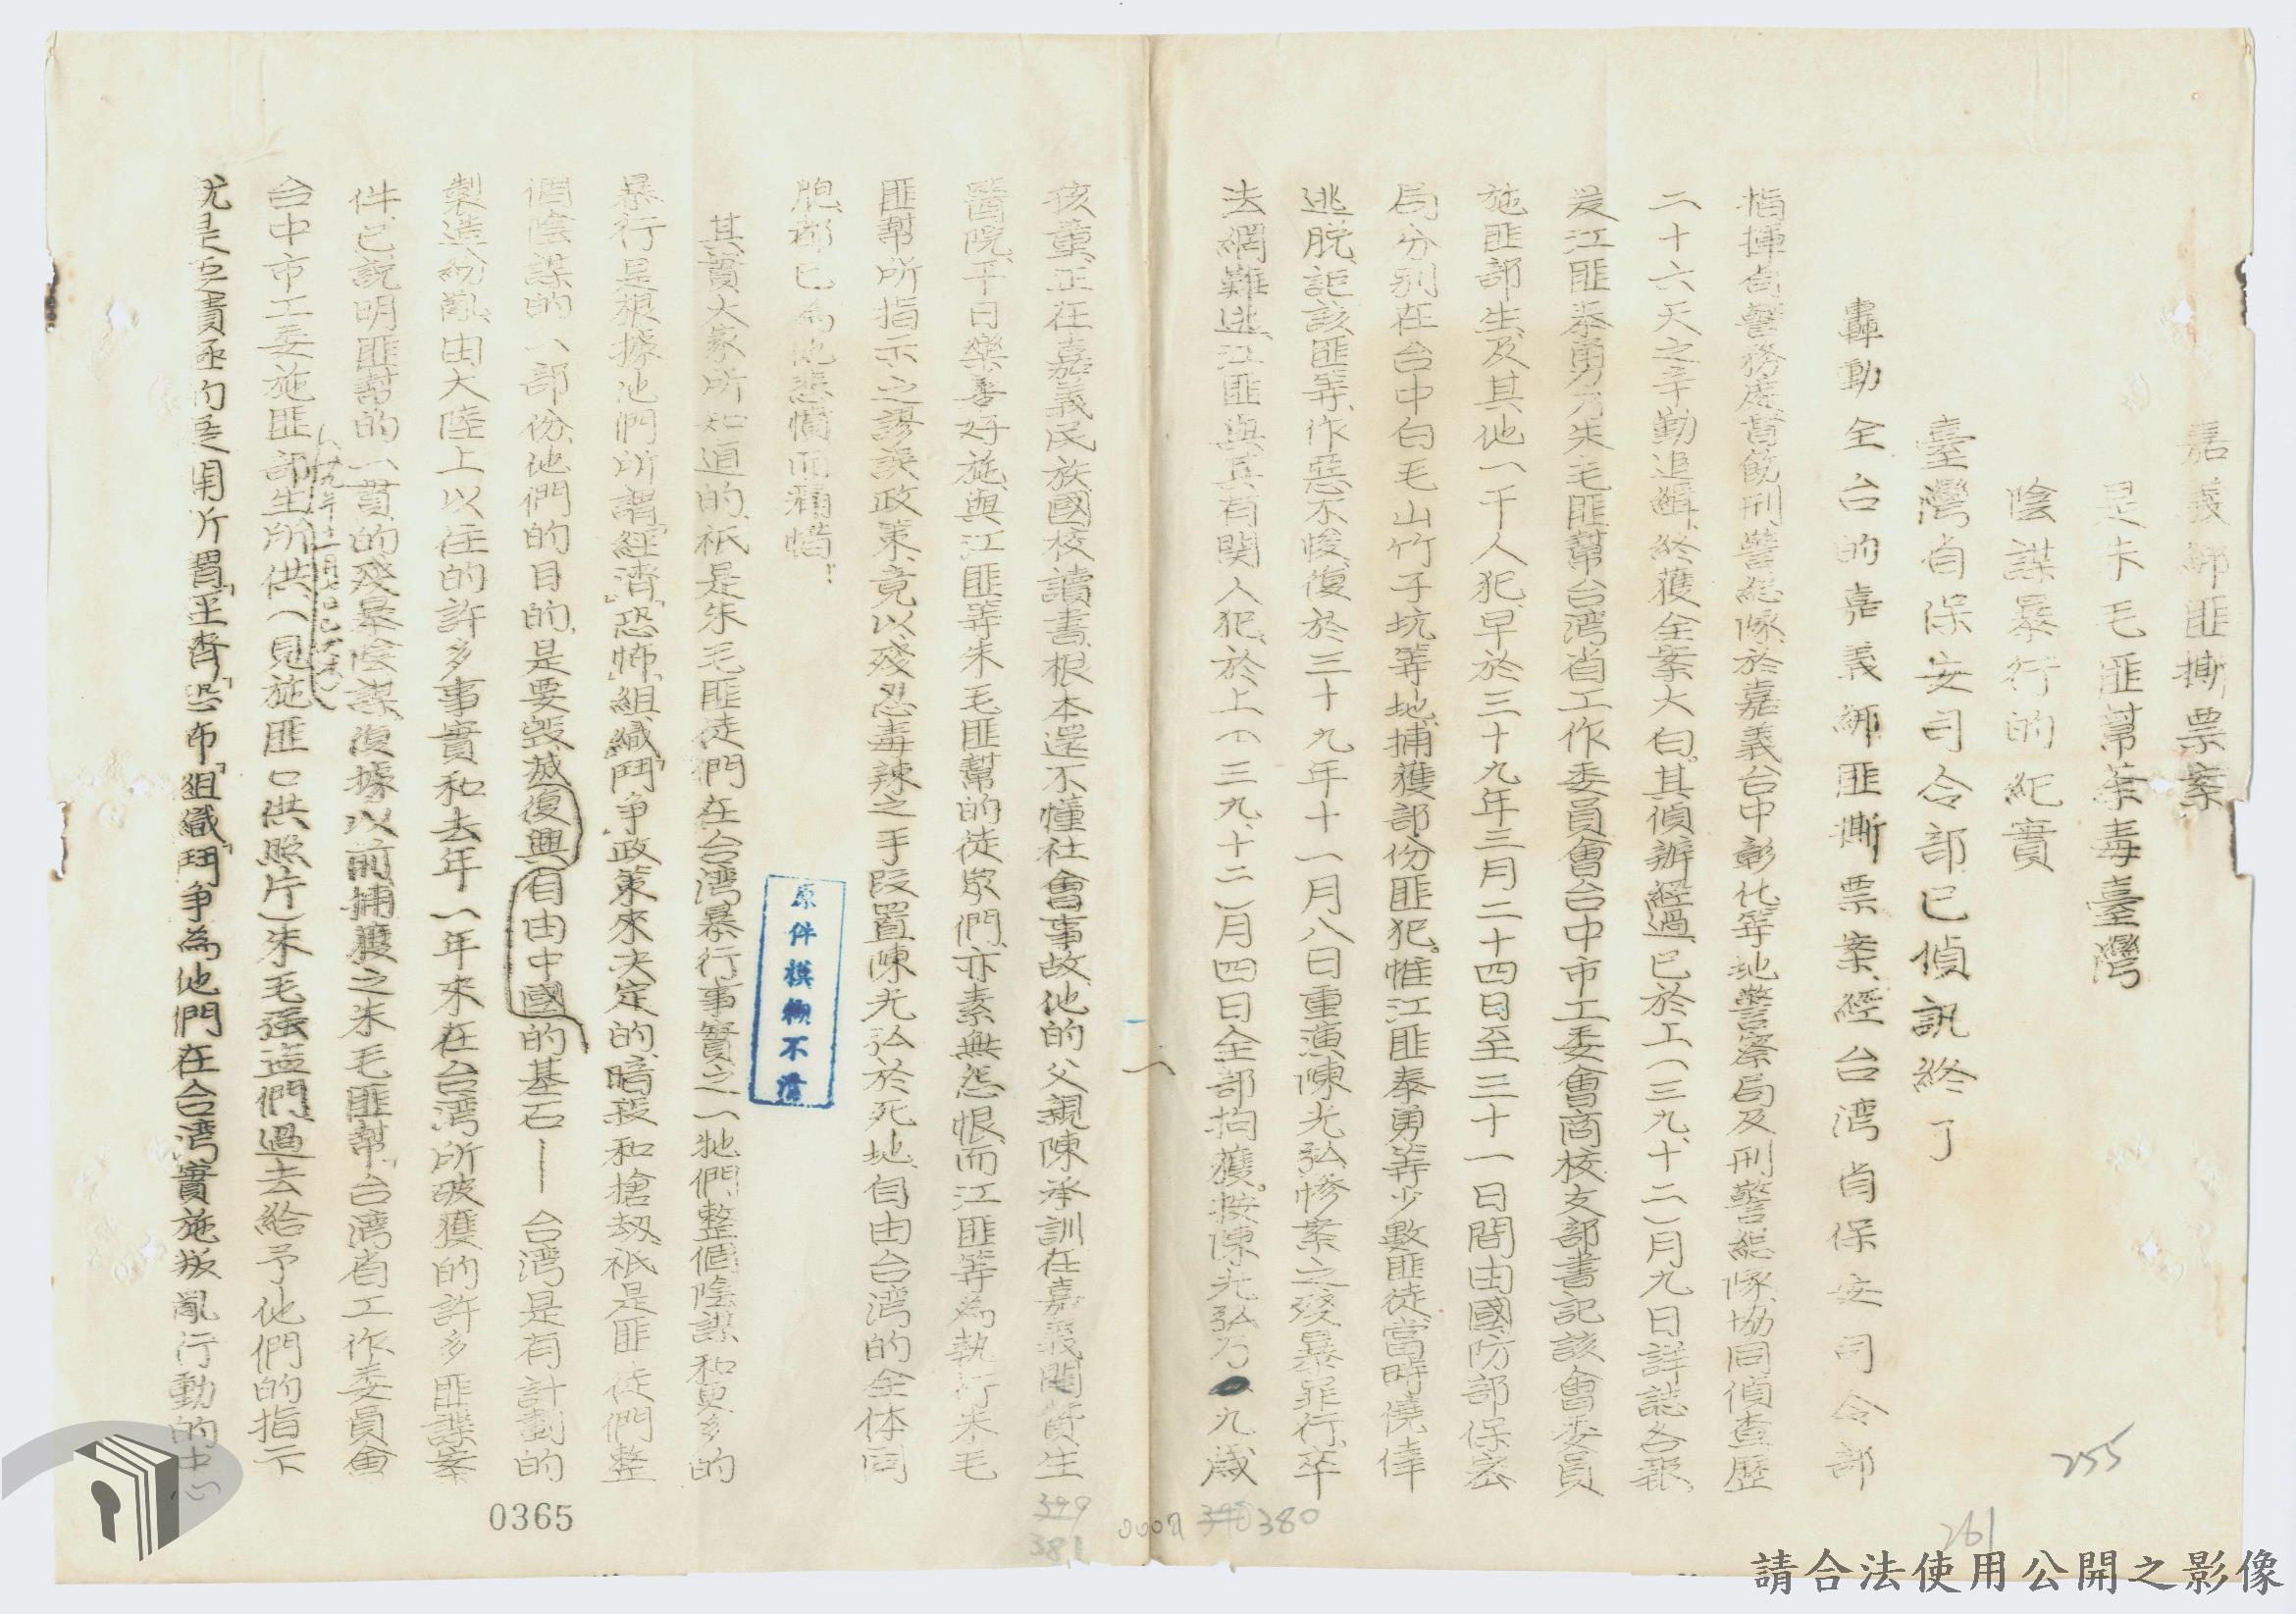 嘉義綁匪撕票案
是朱毛匪幫荼毒臺灣
陰謀暴行的紀實
臺灣省保安司令部已偵訊終了
轟動全台的嘉義綁匪撕票案、經台湾省保安司令部
指揮由警務處督飭刑警總隊、於嘉義台中彰化等地警察局及刑警總隊、協同偵查歷
二十六天之辛勤追緝、終獲全案大白。其偵辦經過、已於上(三九、十二)月九日詳誌各報、
茲江匪泰勇乃朱毛匪幫台湾省工作委員會台中市工委會商校支部書記該會委員
施匪部生、及其他一干人犯、早於三十九年三月二十四日至三十一日間由國防部保密
局分别在台中白毛山竹子坑等地、捕獲部份匪犯。惟江匪泰勇等少數匪徒、當時僥倖
逃脱、詎該匪等、作惡不悛、復於三十九年十一月八日重演陳光弘慘案之殘暴罪行、卒
法網難逃、江匪與其有関人犯、於上(三九、十二)月四日全部拘獲。按陳光弘乃九歲
孩童、正在嘉義民族國校讀書、根本還不懂社會事故、他的父親陳承訓在嘉義開赍生
醫院、平日樂善好施、與江匪等朱毛匪幫的徒眾們、亦素無怨恨、而江匪等為執行朱毛
匪幫所指示之謬誤政策、竟以殘忍毒辣之手段置陳光弘於死地、自由台湾的全体同
胞、都已為他悲憤而痛惜！
其實大家所知道的、衹是朱毛匪徒們在台湾暴行事實之一、牠們整個陰謀和更多的
暴行是根據他們所謂「經濟」「恐怖」「組織」「鬥争政策來决定的、暗殺和搶刼、衹是匪徒們整
個陰謀的一部份、他們的目的、是要毀滅復興自由中國的基石——台湾是有計劃的
製造紛亂、由大陸上以往的許多事實和去年一年來在台湾所破獲的許多匪諜案
件、已說明匪幫的一貫的殘暴陰謀、復據以前捕獲之朱毛匪幫、台湾省工作委員會
台中市工委施匪部生所供、(見施匪口供照片)朱毛强盜們過去給予他們的指示
就是「經濟」「恐布」「組織」「鬥争為他們在台湾實施叛亂行動的中心
原件模糊不清
一
0365
349
381
340 380
255
261
請合法使用公開之影像